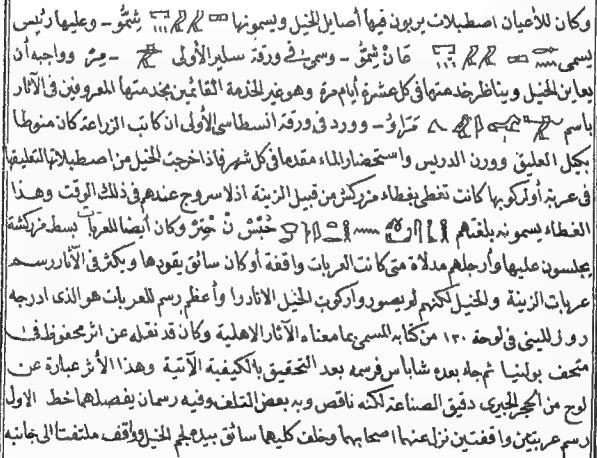 وكان للأعيان اصطبلات يربون فيها أصايل الخيل ويسمونها شمّو ـ وعليها رئيس
يسمى قان شمو ـ وسمى في ورقة سلير الأولى ـ مر وواجبه أن
يعاين الخيل ويناظر خدمتها في كل عشرة أيام مرة وهو غير الخدمة القائمين بخدمتها المعروفين في الآثار
باسم مراو ـ وورد في ورقة انسطاسى الأولى ان كاتب الزراعة كان منوطا
بكيل العليق ووزن الدريس واستحضار الماء مقدما في كل شهر فاذا خرجت الخيل من اصطبلاتها لتعليقها
في عربة أو لركوبها كانت تغطى بغطاء مزركش من قبيل الزينة اذ لا سروج عندهم في ذلك الوقت وهذا
الغطاء يسمونه بلغتهم خبس ن حتر وكان أيضا للعربات بسط مزركشة
يجلسون عليها وأرجلهم مدلاة متى كانت العربات واقفة أو كان سائق يقودها ويكثر في الآثار رسم
عربات الزينة والخيل لكنهم لم يصوروا ركوب الخيل الا نادرا وأعظم رسم للعربات هو الذى أدرجه
روزلليني في لوحة ١٣٠ من كتابه المسمى بما معناه الآثار الاهلية وكان قد نقله عن اثر محفوظ في
متحف بولنيا ثم جاء بعده شاباس فرسمه بعد التحقيق بالكيفية الآتية وهذا الأثر عبارة عن
لوح من الحجر الجيرى دقيق الصناعة لكنه ناقص وبه بعض التلف وفيه رسمان يفصلهما خط الاول
رسم عربتين واقفتين نزل عنهما اصحابهما وخلف كليهما سائق بيده لجم الخيل وواقف ملتفتا الى جانبه